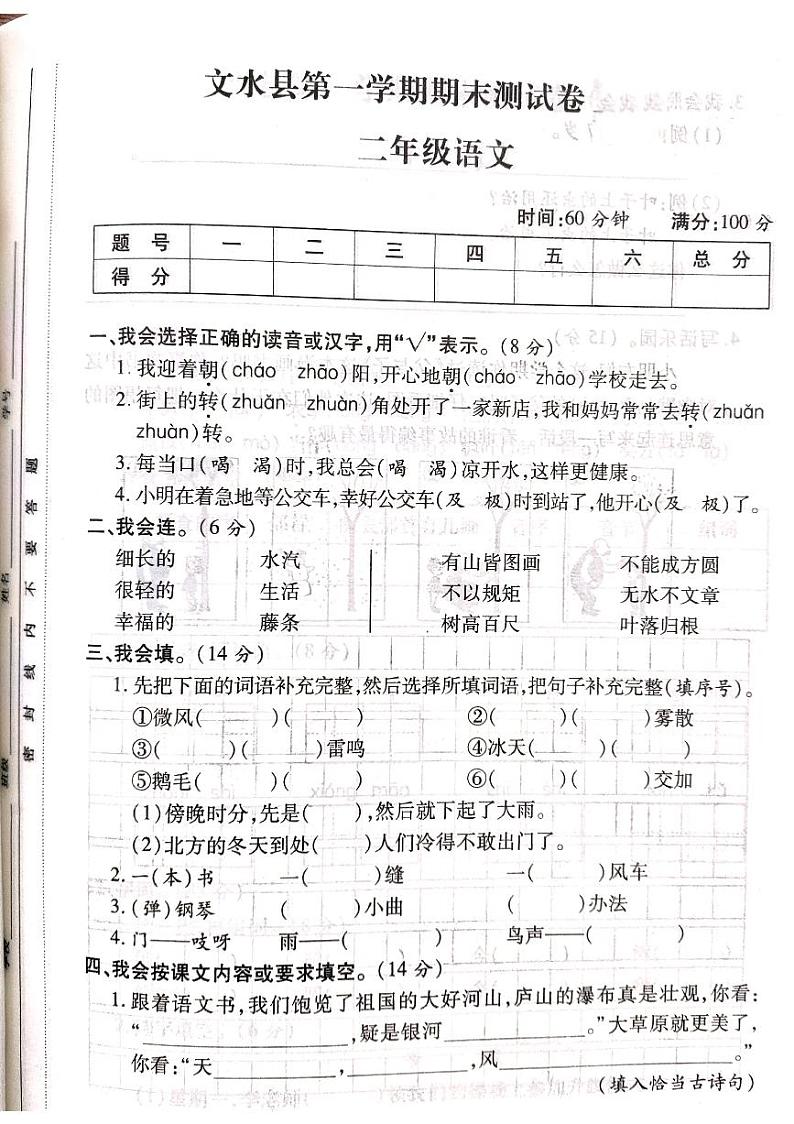 文水县第一学期期末测试卷
二年级语文
时间:60分钟 满分:100分
题 号 一 二 三 四 五 六 总 分
得 分
一、我会选择正确的读音或汉字,用“√”表示。(8分)
1. 我迎着朝(cháo zhāo)阳,开心地朝(cháo zhāo)学校走去。
2. 街上的转(zhuǎn zhuàn)角处开了一家新店,我和妈妈常常去转(zhuǎn
zhuàn)转。
3. 每当口(喝 渴)时,我总会(喝 渴)凉开水,这样更健康。
4. 小明在着急地等公交车,幸好公交车(及 极)时到站了,他开心(及 极)了。
二、我会连。(6分)
细长的 水汽 有山皆图画 不能成方圆
很轻的 生活 不以规矩 无水不文章
幸福的 藤条 树高百尺 叶落归根
三、我会填。(14分)
1. 先把下面的词语补充完整,然后选择所填词语,把句子补充完整(填序号)。
①微风( )( ) ②( )( )雾散
③( )( )雷鸣 ④冰天( )( )
⑤鹅毛( )( ) ⑥( )( )交加
(1)傍晚时分,先是( ),然后就下起了大雨。
(2)北方的冬天到处( )人们冷得不敢出门了。
2. 一(本)书 一( )缝 一( )风车
3. (弹)钢琴 ( )小曲 ( )办法
4. 门——吱呀 雨——( ) 鸟声——( )
四、我会按课文内容或要求填空。(14分)
1. 跟着语文书,我们饱览了祖国的大好河山,庐山的瀑布真是壮观,你看:
“__________,疑是银河__________。”大草原就更美了,
你看:“天__________,__________,风__________。”
(填入恰当古诗句)
学号
姓名
班级
学校
密 封 线 内 不 要 答 题